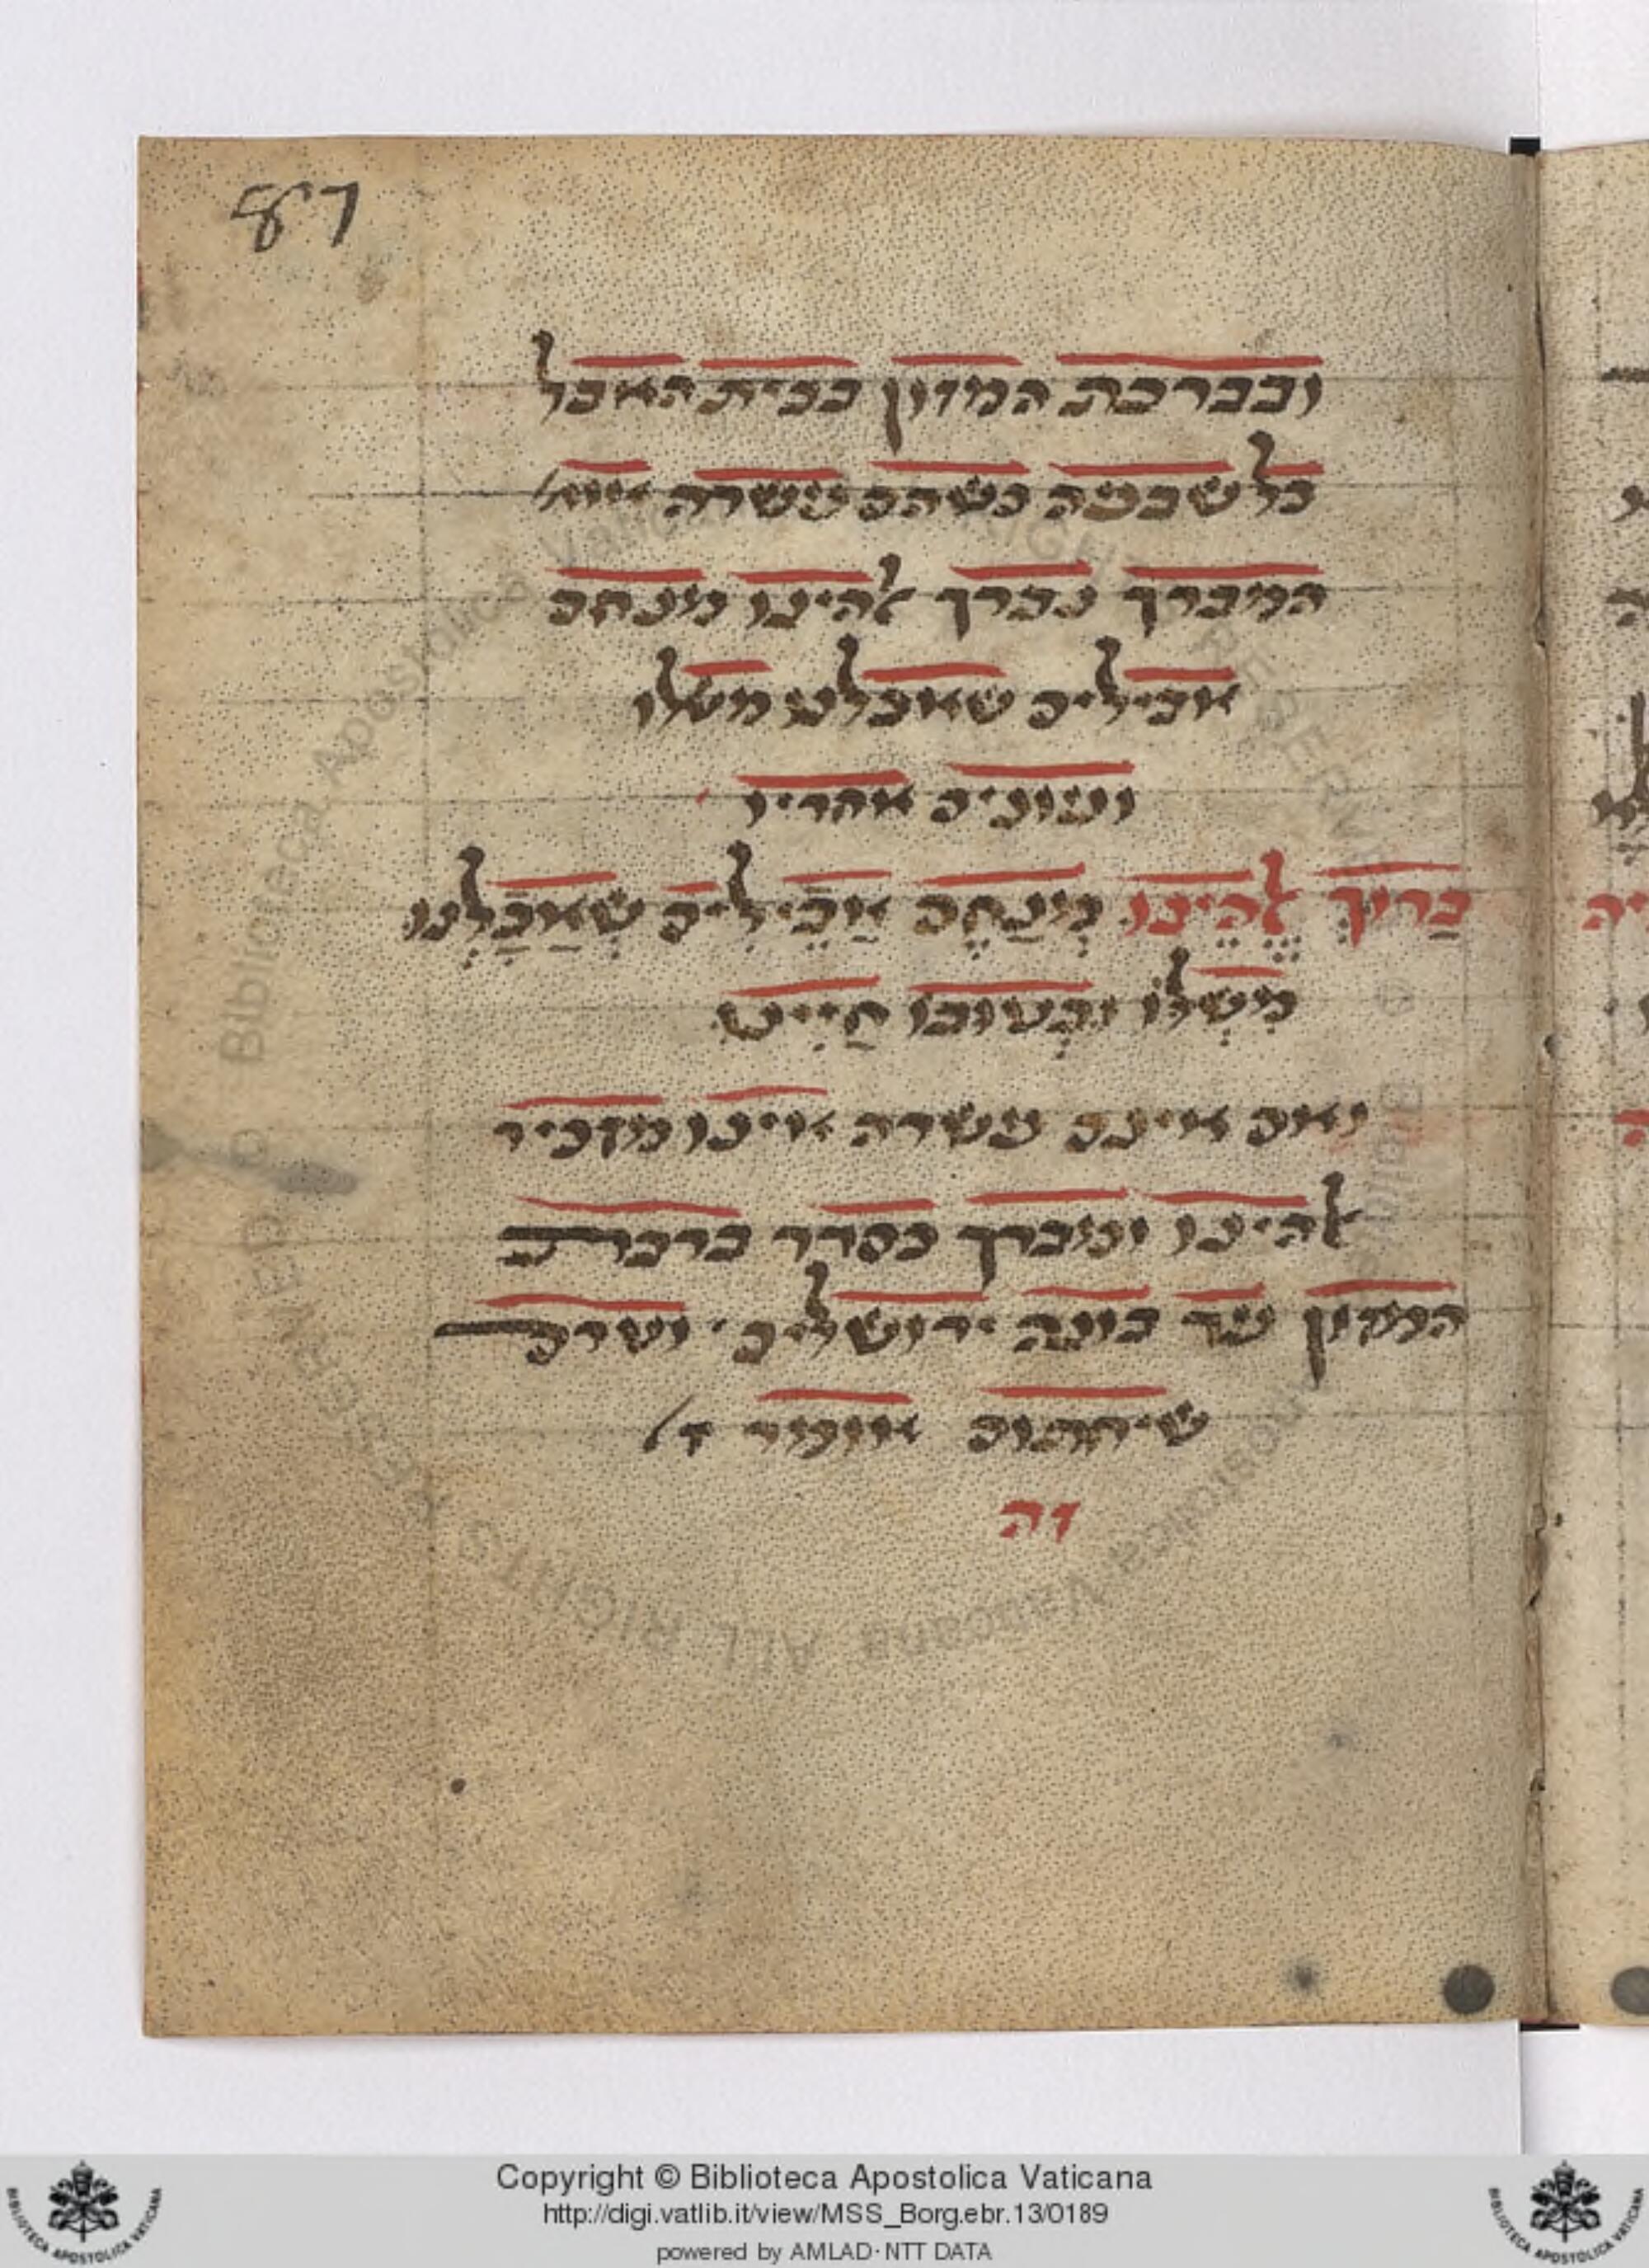 87
ובברכת המזון בבית האבל
כל שבעה כשהם עשרה אומ׳
המברך נברך אלהינו מנחם
אבילים שאכלנו משלו
ועונים אחריו
בָּרוּךְ אֱלֹהֵינוּ מְנַחֵם אֲבֵילִים שֶׁאָכַלְנוּ
מִשֶּׁלּוֹ וּבְטוּבוֹ חָיִינוּ
ואם אינם עשרה אינו מזכיר
אלהינו ומברך כסדר ברכת
המזון עד בונה ירושלים
שיחתום אומר ז׳
זה
Copyright © Biblioteca Apostolica Vaticana
http://digi.vatlib.it/view/MSS_Borg.ebr.13/0189
powered by AMLAD·NTT DATA